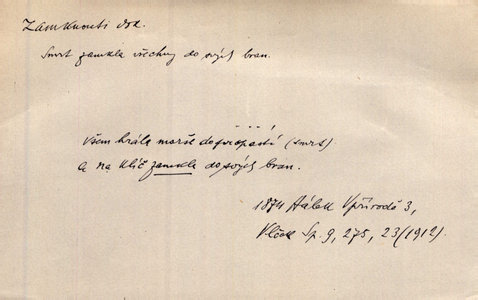 Zamknouti dok.
Smrt zamkla všechny do svých bran.
Všem hrála marš do propastí (smrt)
a na klíč zamkla do svých bran.
1874 Hálek V přírodě 3,
Vlček Sp. 9, 275, 23 (1912).